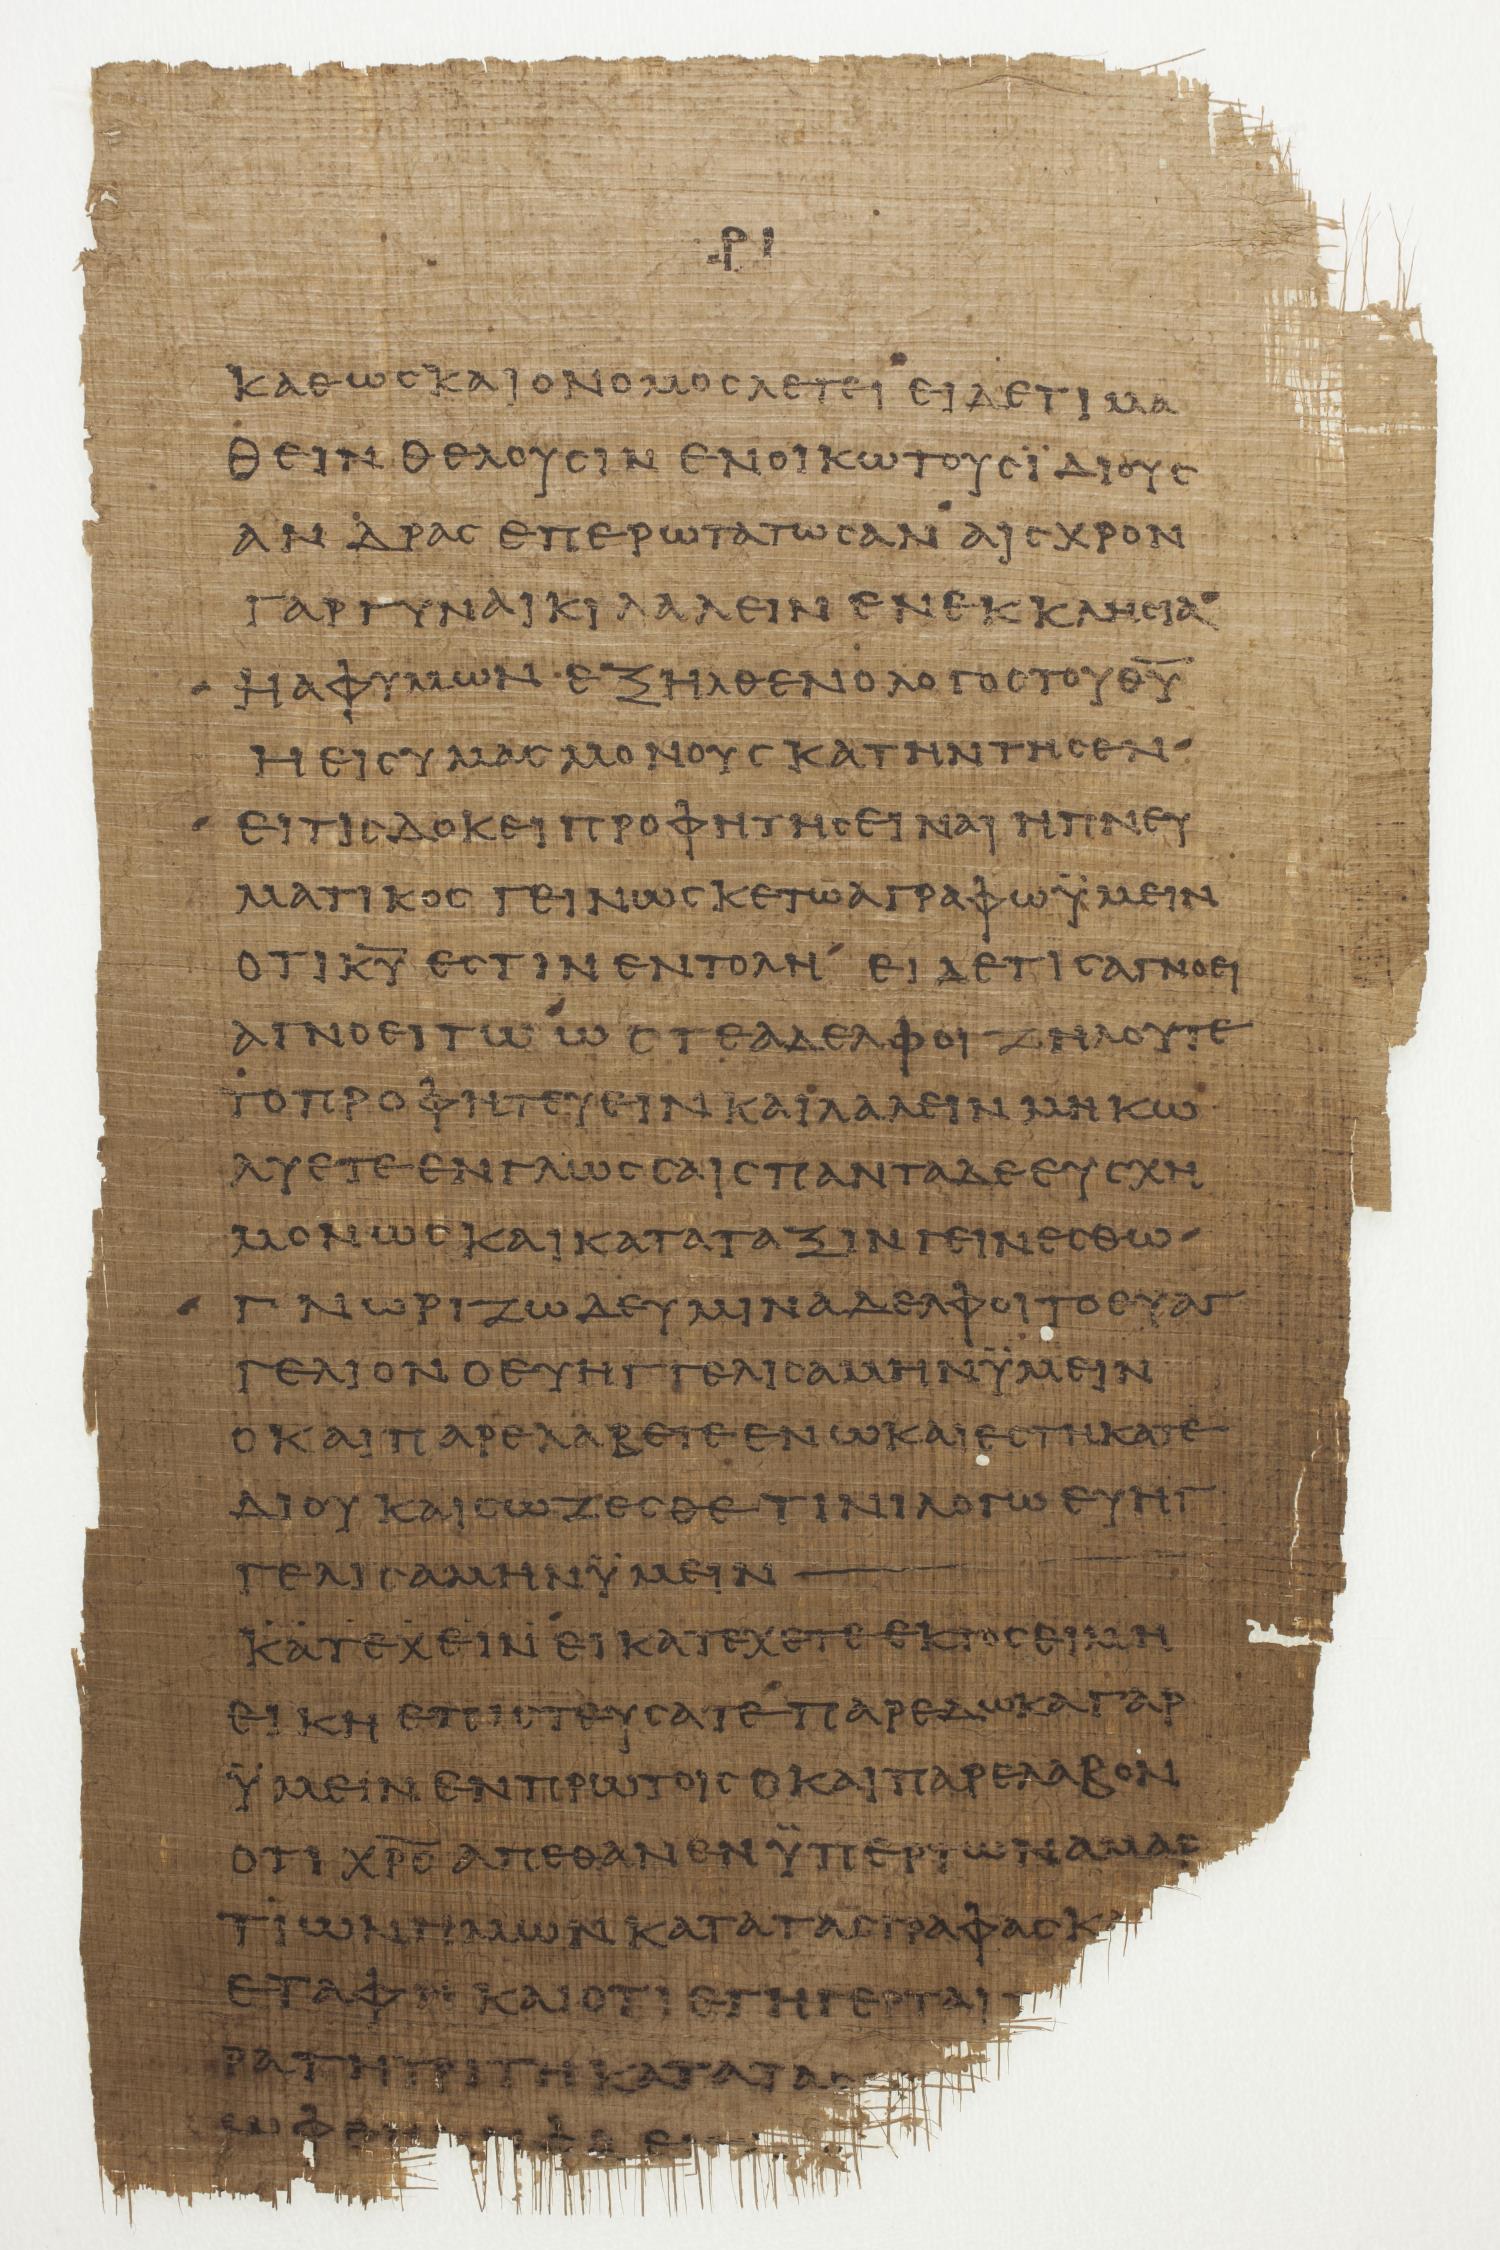 ΡΙ
ΚΑΘΩΣ ΚΑΙ Ο ΝΟΜΟΣ ΛΕΓΕΙ ΕΙ ΔΕ ΤΙ ΜΑ
ΘΕΙΝ ΘΕΛΟΥΣΙΝ ΕΝ ΟΙΚΩ ΤΟΥΣ ΪΔΙΟΥΣ
ΑΝΔΡΑΣ ΕΠΕΡΩΤΑΤΩΣΑΝ ΑΙΣΧΡΟΝ
ΓΑΡ ΓΥΝΑΙΚΙ ΛΑΛΕΙΝ ΕΝ ΕΚΚΛΗΣΙΑ
Η ΑΦ ΥΜΩΝ ΕΞΗΛΘΕΝ Ο ΛΟΓΟΣ ΤΟΥ Θ̅Υ̅
Η ΕΙΣ ΥΜΑΣ ΜΟΝΟΥΣ ΚΑΤΗΝΤΗΣΕΝ
ΕΙ ΤΙΣ ΔΟΚΕΙ ΠΡΟΦΗΤΗΣ ΕΙΝΑΙ Η ΠΝΕΥ
ΜΑΤΙΚΟΣ ΓΕΙΝΩΣΚΕΤΩ Α ΓΡΑΦΩ ΫΜΕΙΝ
ΟΤΙ Κ̅Υ̅ ΕΣΤΙΝ ΕΝΤΟΛΗ ΕΙ ΔΕ ΤΙΣ ΑΓΝΟΕΙ
ΑΓΝΟΕΙΤΩ ΩΣΤΕ ΑΔΕΛΦΟΙ ΖΗΛΟΥΤΕ
ΤΟ ΠΡΟΦΗΤΕΥΕΙΝ ΚΑΙ ΛΑΛΕΙΝ ΜΗ ΚΩ
ΛΥΕΤΕ ΕΝ ΓΛΩΣΣΑΙΣ ΠΑΝΤΑ ΔΕ ΕΥΣΧΗ
ΜΟΝΩΣ ΚΑΙ ΚΑΤΑ ΤΑΞΙΝ ΓΕΙΝΕΣΘΩ
ΓΝΩΡΙΖΩ ΔΕ ΥΜΙΝ ΑΔΕΛΦΟΙ ΤΟ ΕΥΑΓ
ΓΕΛΙΟΝ Ο ΕΥΗΓΓΕΛΙΣΑΜΗΝ ΫΜΕΙΝ
Ο ΚΑΙ ΠΑΡΕΛΑΒΕΤΕ ΕΝ Ω ΚΑΙ ΕΣΤΗΚΑΤΕ
ΔΙ ΟΥ ΚΑΙ ΣΩΖΕΣΘΕ ΤΙΝΙ ΛΟΓΩ ΕΥΗΓ
ΓΕΛΙΣΑΜΗΝ ΫΜΕΙΝ
ΚΑΤΕΧΕΙΝ ΕΙ ΚΑΤΕΧΕΤΕ ΕΚΤΟΣ ΕΙ ΜΗ
ΕΙΚΗ ΕΠΙΣΤΕΥΣΑΤΕ ΠΑΡΕΔΩΚΑ ΓΑΡ
ΫΜΕΙΝ ΕΝ ΠΡΩΤΟΙΣ Ο ΚΑΙ ΠΑΡΕΛΑΒΟΝ
ΟΤΙ Χ̅Ρ̅Σ̅ ΑΠΕΘΑΝΕΝ ΫΠΕΡ ΤΩΝ ΑΜΑΡ
ΤΙΩΝ ΗΜΩΝ ΚΑΤΑ ΤΑΣ ΓΡΑΦΑΣ Κ
ΕΤΑΦΗ ΚΑΙ ΟΤΙ ΕΓΗΓΕΡΤΑΙ Τ
ΡΑ ΤΗ ΤΡΙΤΗ ΚΑΤΑ ΤΑΣ